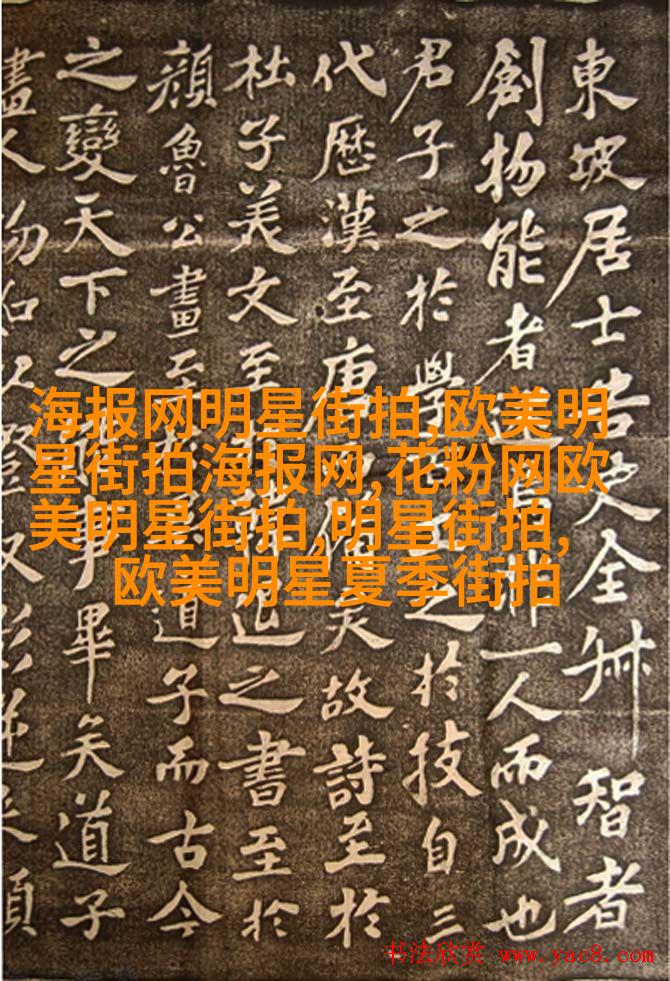 東坡居士告史全叔智者
創物能者述非一人而成也
君子之於學百工之於技自三
代歷漢至唐而備矣故詩至於
杜子美文至於韓退之書至於
顏魯公畫至於吳道子而古今
之變天下之能事畢矣道子
畫人物如以鐙取影逆來順
海报网明星街拍,欧美明
星街拍海报网,花粉网欧
美明星街拍,明星街拍,
欧美明星夏季街拍
书法欣赏 www.yac8.com